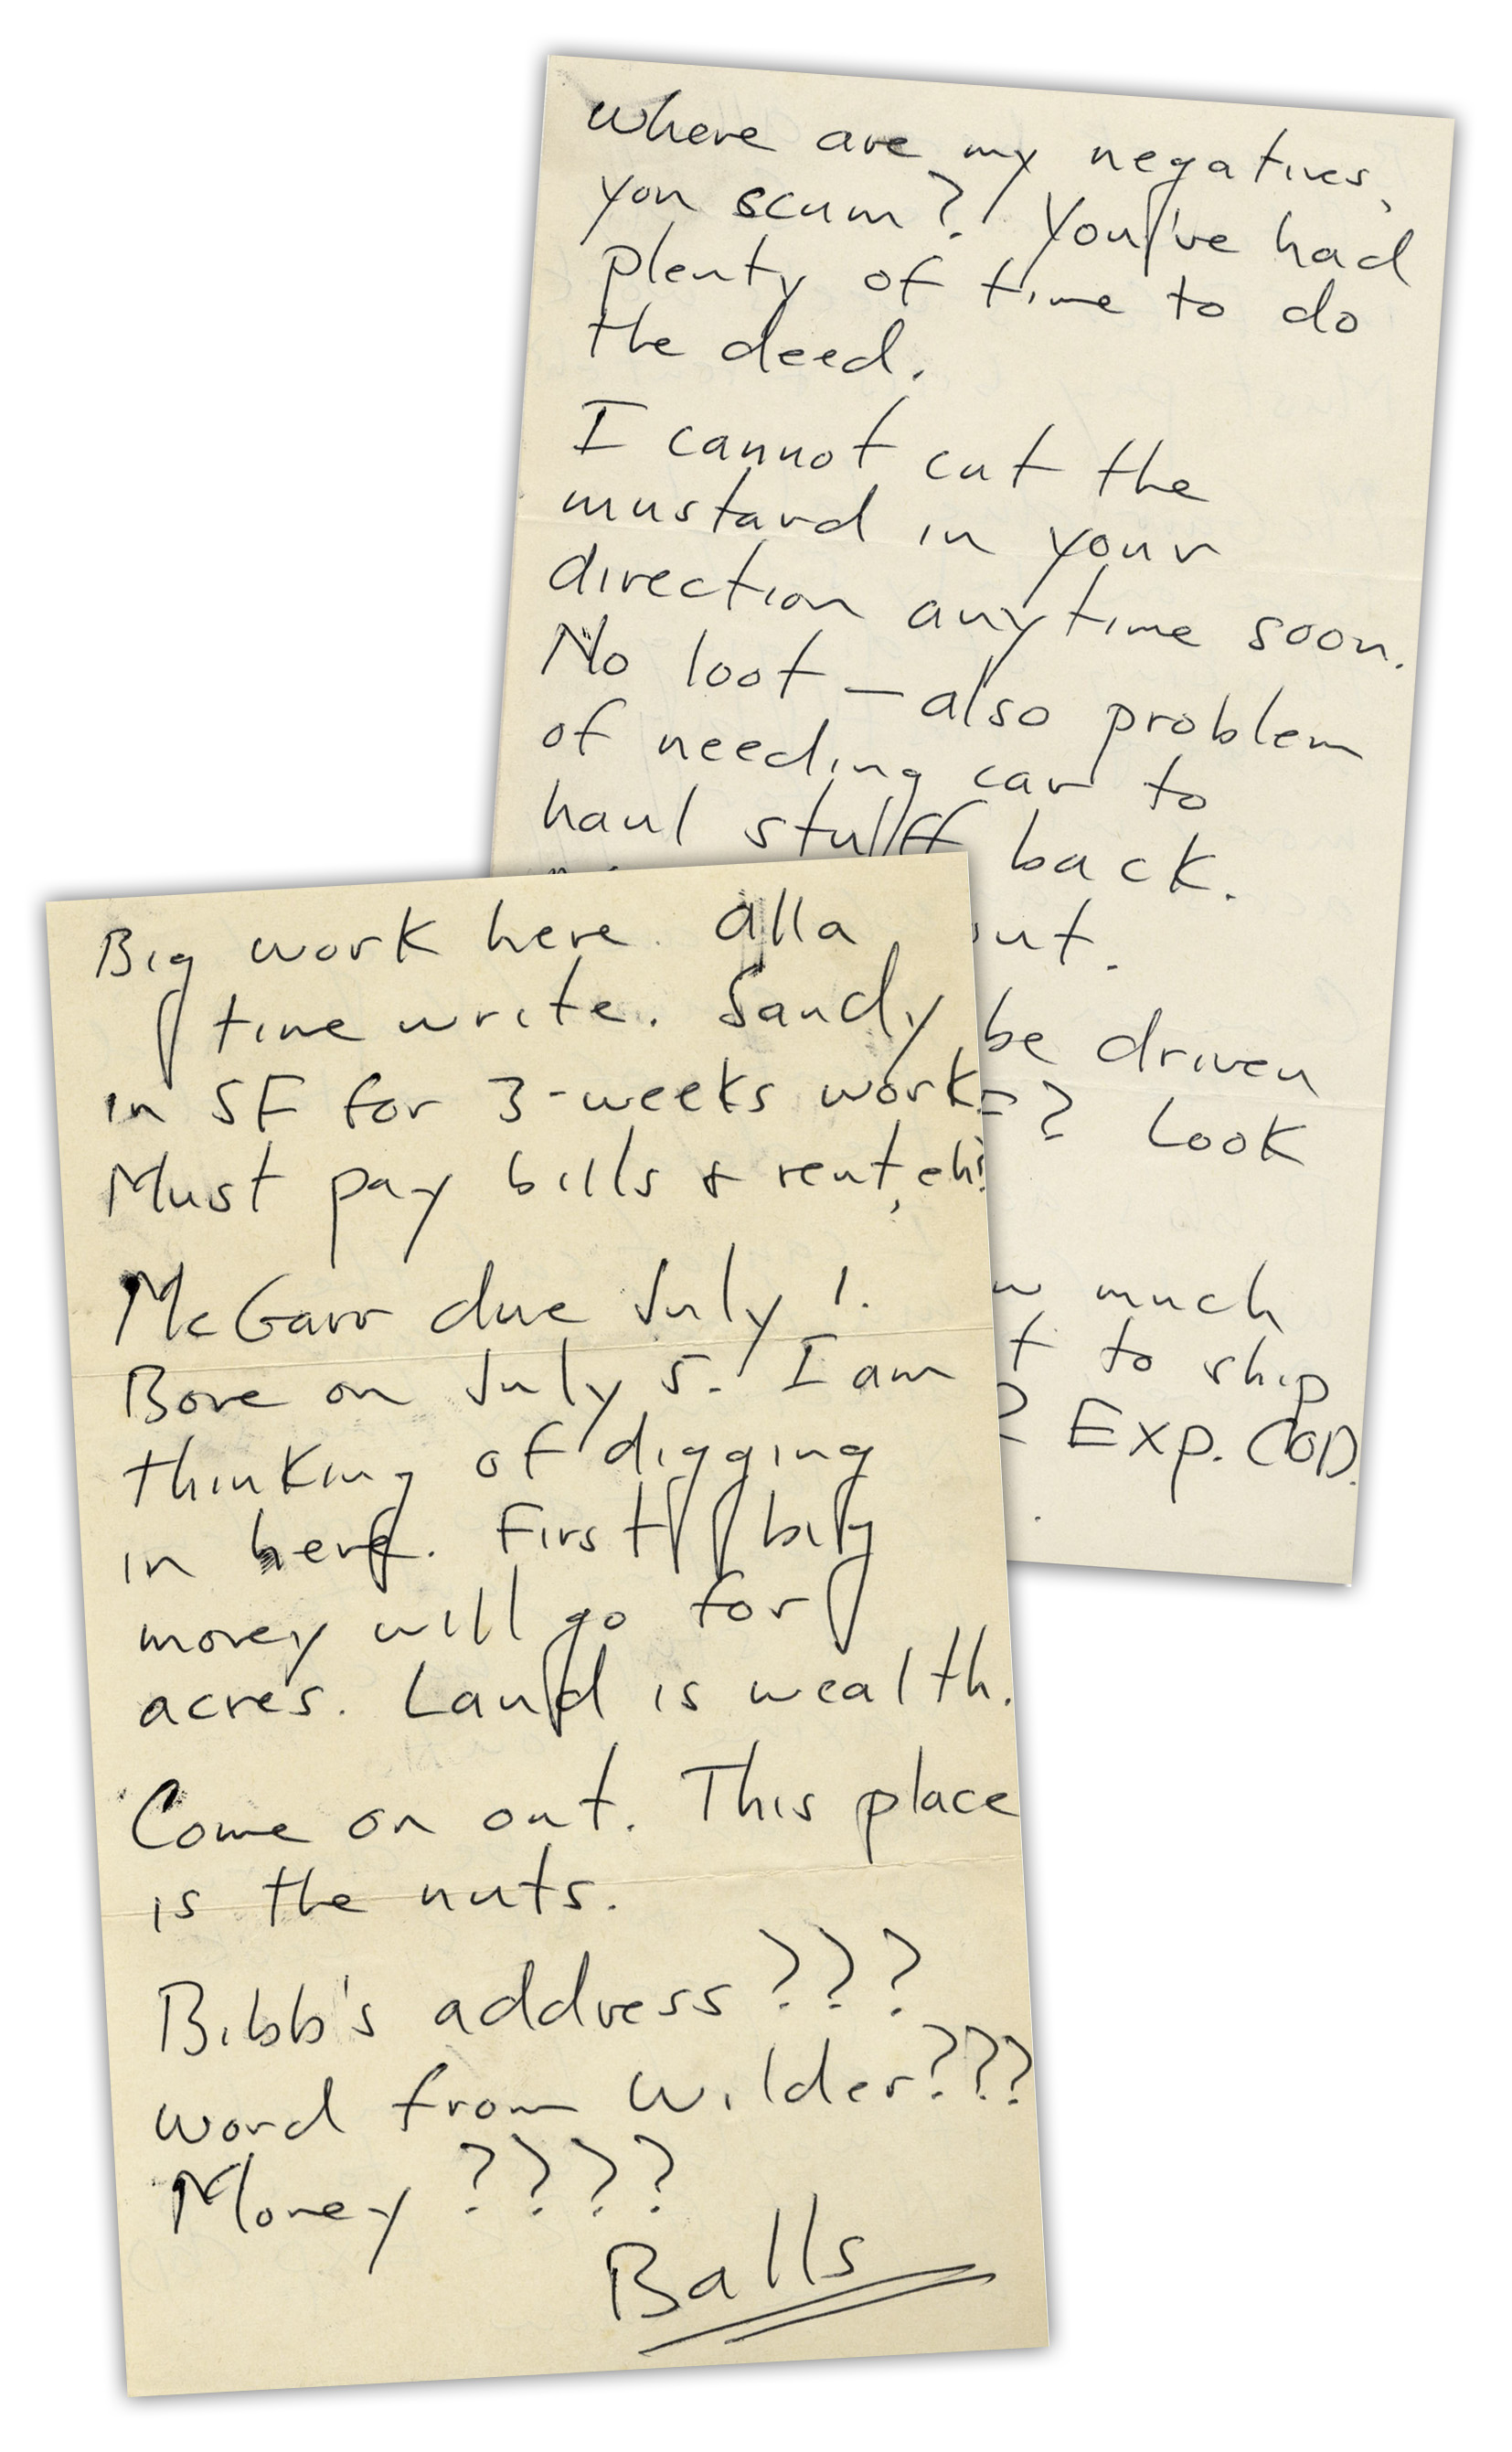 Where are my negatives,
you scum? You've had
plenty of time to do
the deed.
I cannot cut the
mustard in your
direction anytime soon.
No loot — also problem
of needing car to
haul stuff back.
be driven
? Look
much
to ship
Exp. COD.
Big work here. alla
time write. Sandy
in SF for 3-weeks work.
Must pay bills & rent, eh?
McGarr due July 1.
Bone on July 5. I am
thinking of digging
in here. First big
money will go for
acres. Land is wealth.
Come on out. This place
is the nuts.
Bibb's address???
word from Wilder???
Money ????
Balls